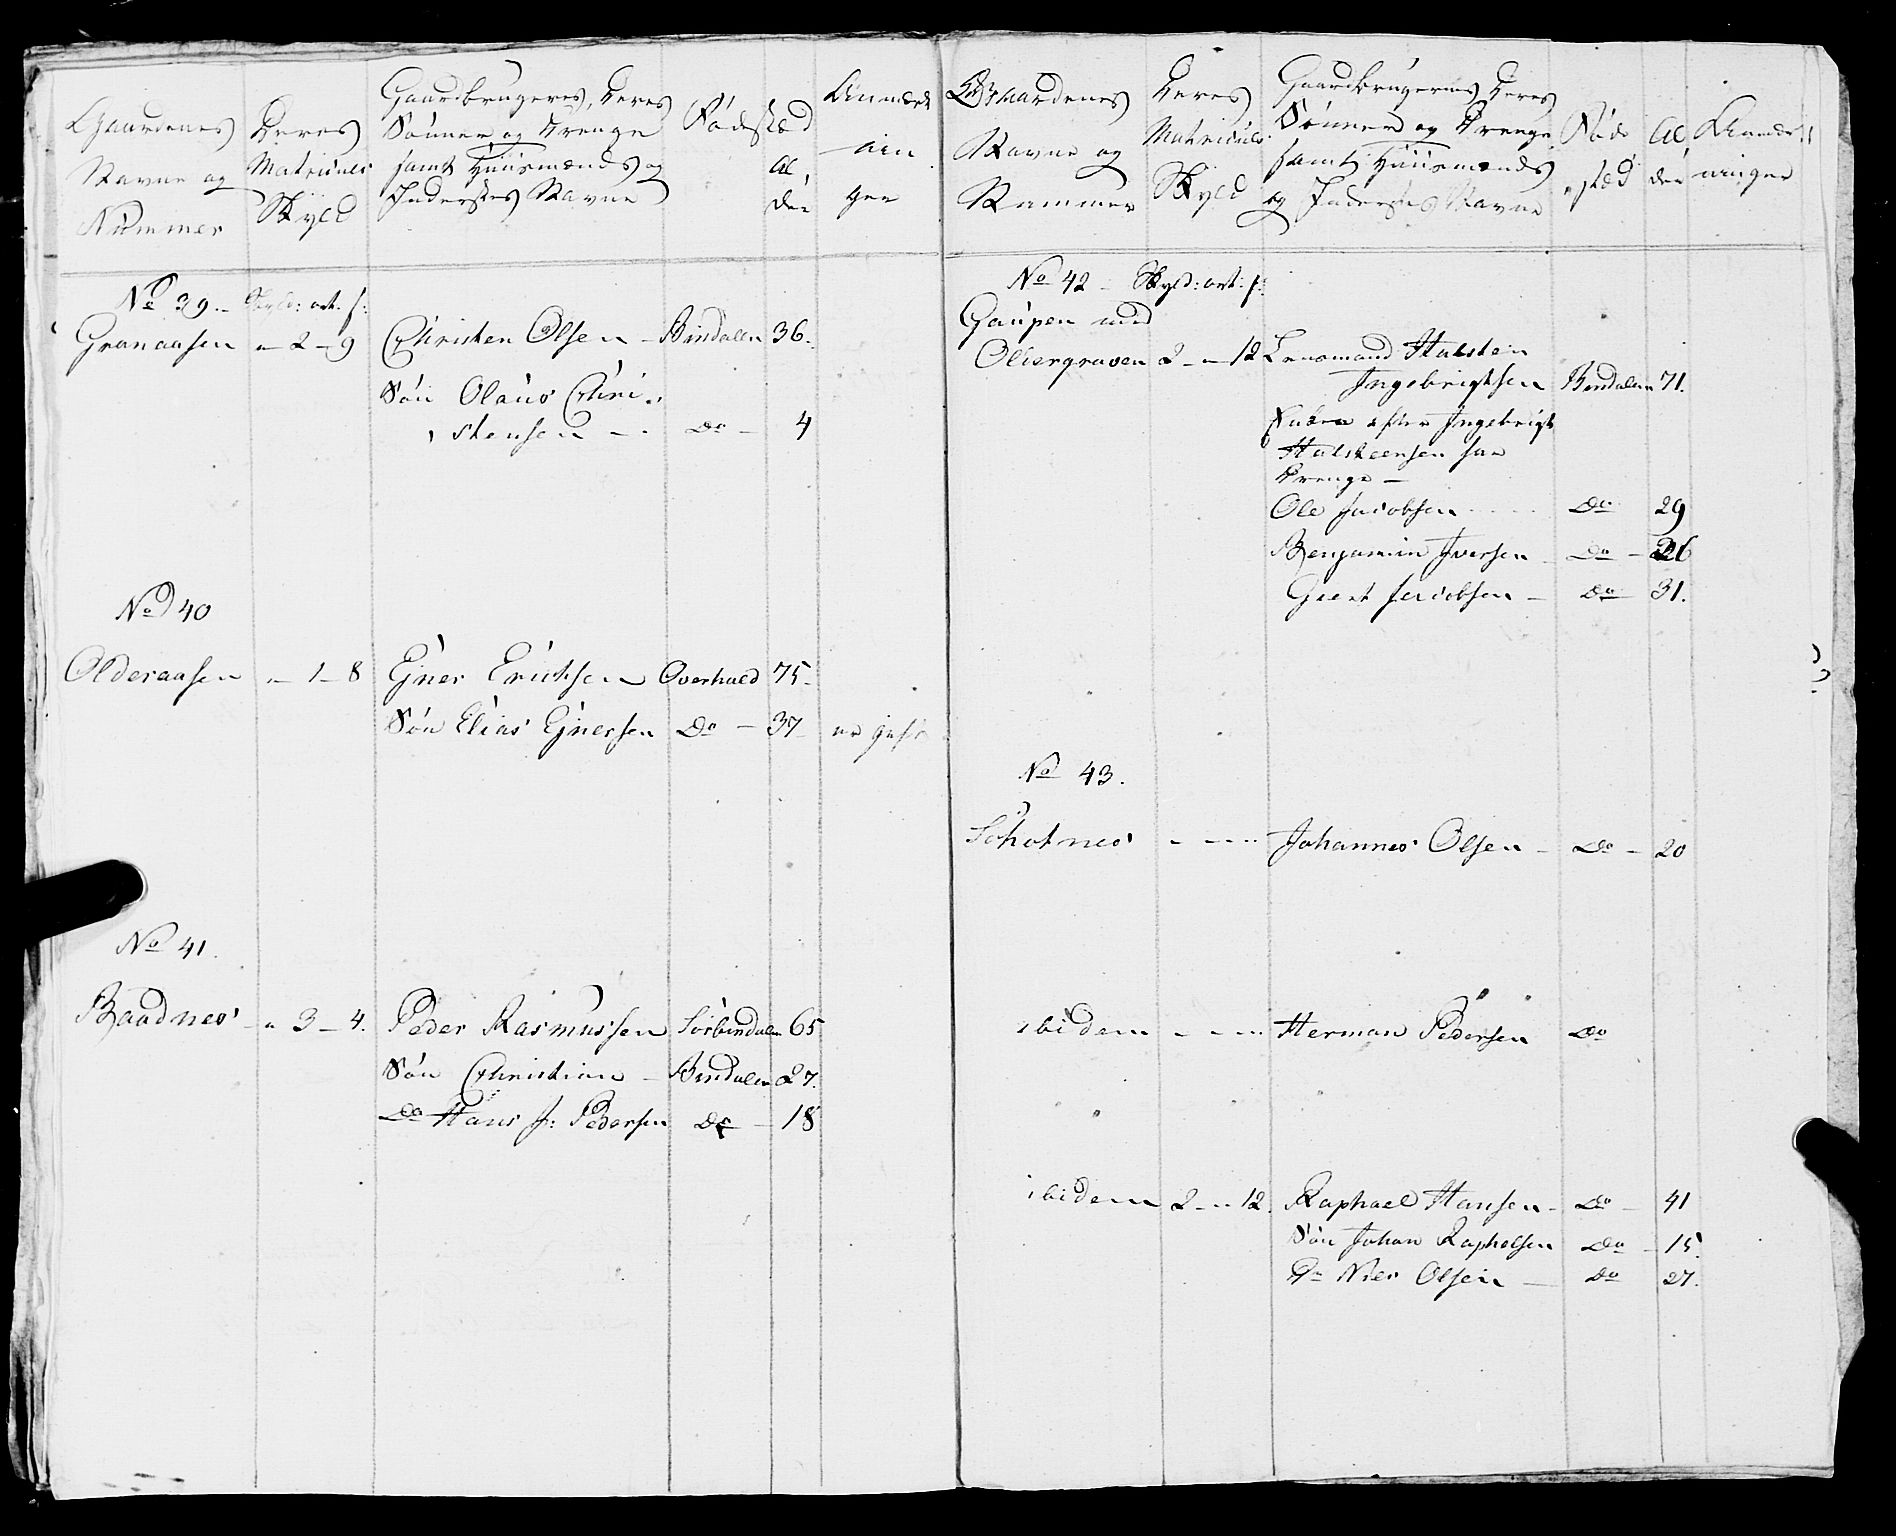 Gaardenes
Navne og
Nummer
Deres
Matriculs
Skyld
Gaardbrugeres, Deres
Sønner og Drenge
samt Huusmænds og
Inderstes Navne
Fødestæd
Al,
der
Anmærk
nin
ger
No 39. Skyld: ort. s:
Granaasen " 2 - 9 Christen Olsen - Bindalen 36.
Søn Olaus Chri,
, stensen - Do - 4
No 40
Olderaasen " 1 - 8 Ejner Erichsen Overhald 75
Søn Elias Ejnersen Do - 37
No 41.
Baadnes " 3 - 4. Peder Rasmussen Sørbindalen 65
Søn Christian - Bindalen 27.
Do Hans J: Pedersen Do - 18
Gaardenes
Navne og
Nummer
Deres
Matriculs
Skyld
Gaardbrugernes Deres
Sønner og Drenge
samt Huusmænds
og Inderstes Navne
Føde
stæd
Al
der
Anmærk
ninger
No 42 - Skyld: ort: s:
Gaupen med
Oldergraven 2 - " 12 Lensmand Halsten
Ingebrigtsen Bindalen 71.
efter Ingebrigt
Halsteensen
Drenge -
Ole Jacobsen Do 29
Benjamin Iversen Do - 26
Jacobsen - Do 31.
No 43.
- - - Johannes Olsen - Do - 20
ibidem - - - Herman Pedersen Do
ibidem 2 - " 12. Raphael Hansen - Do - 41
Søn Johan Raphelsen Do - 15.
Do Niels Olsen - Do 27.